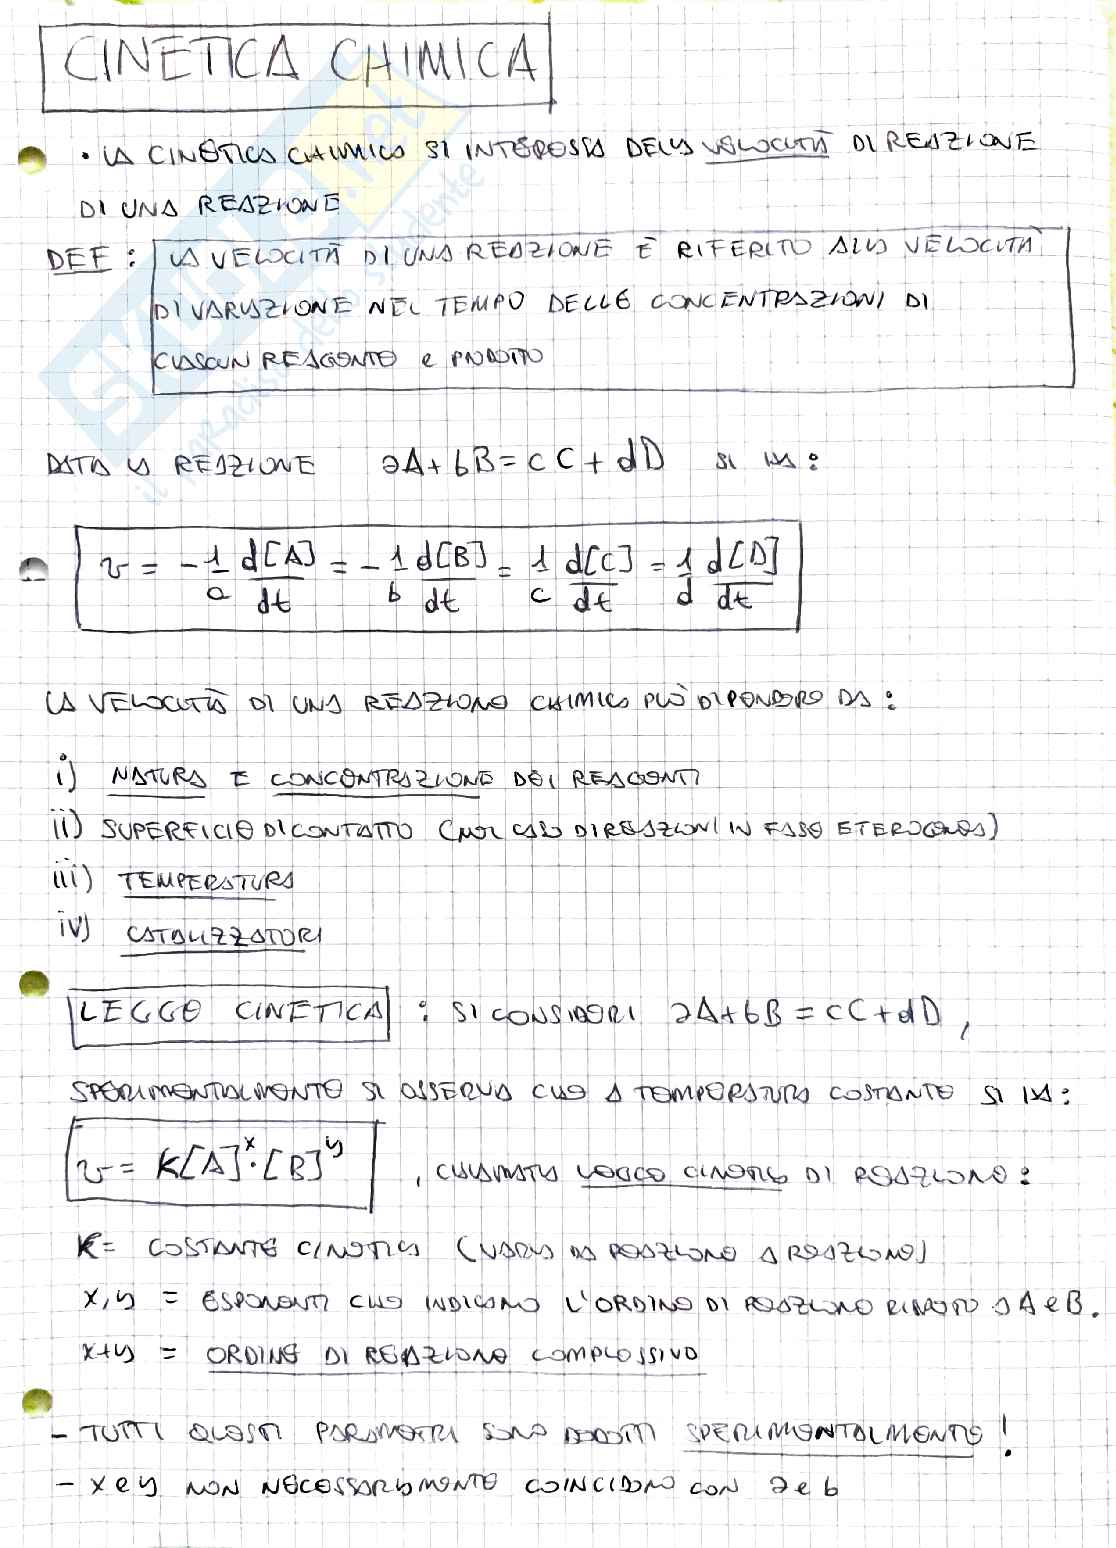 CINETICA CHIMICA
• LA CINETICA CHIMICA SI INTERESSA DELLA VELOCITÀ DI REAZIONE
DI UNA REAZIONE
DEF : LA VELOCITÀ DI UNA REAZIONE È RIFERITO ALLA VELOCITÀ
DI VARIAZIONE NEL TEMPO DELLE CONCENTRAZIONI DI
CIASCUN REAGENTE e PRODOTTO
DATA LA REAZIONE aA + bB = cC + dD SI HA :
v = - 1/a d[A]/dt = - 1/b d[B]/dt = 1/c d[C]/dt = 1/d d[D]/dt
LA VELOCITÀ DI UNA REAZIONE CHIMICA PUÒ DIPENDERE DA :
i) NATURA E CONCENTRAZIONE DEI REAGENTI
ii) SUPERFICIE DI CONTATTO (NEL CASO DI REAZIONI IN FASE ETEROGENEA)
iii) TEMPERATURA
iv) CATALIZZATORI
LEGGE CINETICA : SI CONSIDERI aA + bB = cC + dD ,
SPERIMENTALMENTE SI OSSERVA CHE A TEMPERATURA COSTANTE SI HA :
v = K[A]^x · [B]^y , CHIAMATA LEGGE CINETICA DI REAZIONE :
K = COSTANTE CINETICA (VARIA DA REAZIONE A REAZIONE)
x, y = ESPONENTI CHE INDICANO L'ORDINE DI REAZIONE RISPETTO A A e B.
x+y = ORDINE DI REAZIONE COMPLESSIVO
- TUTTI QUESTI PARAMETRI SONO DEDOTTI SPERIMENTALMENTE !
- x e y NON NECESSARIAMENTE COINCIDONO CON a e b
SKUOLA.net
il paradiso dello studente